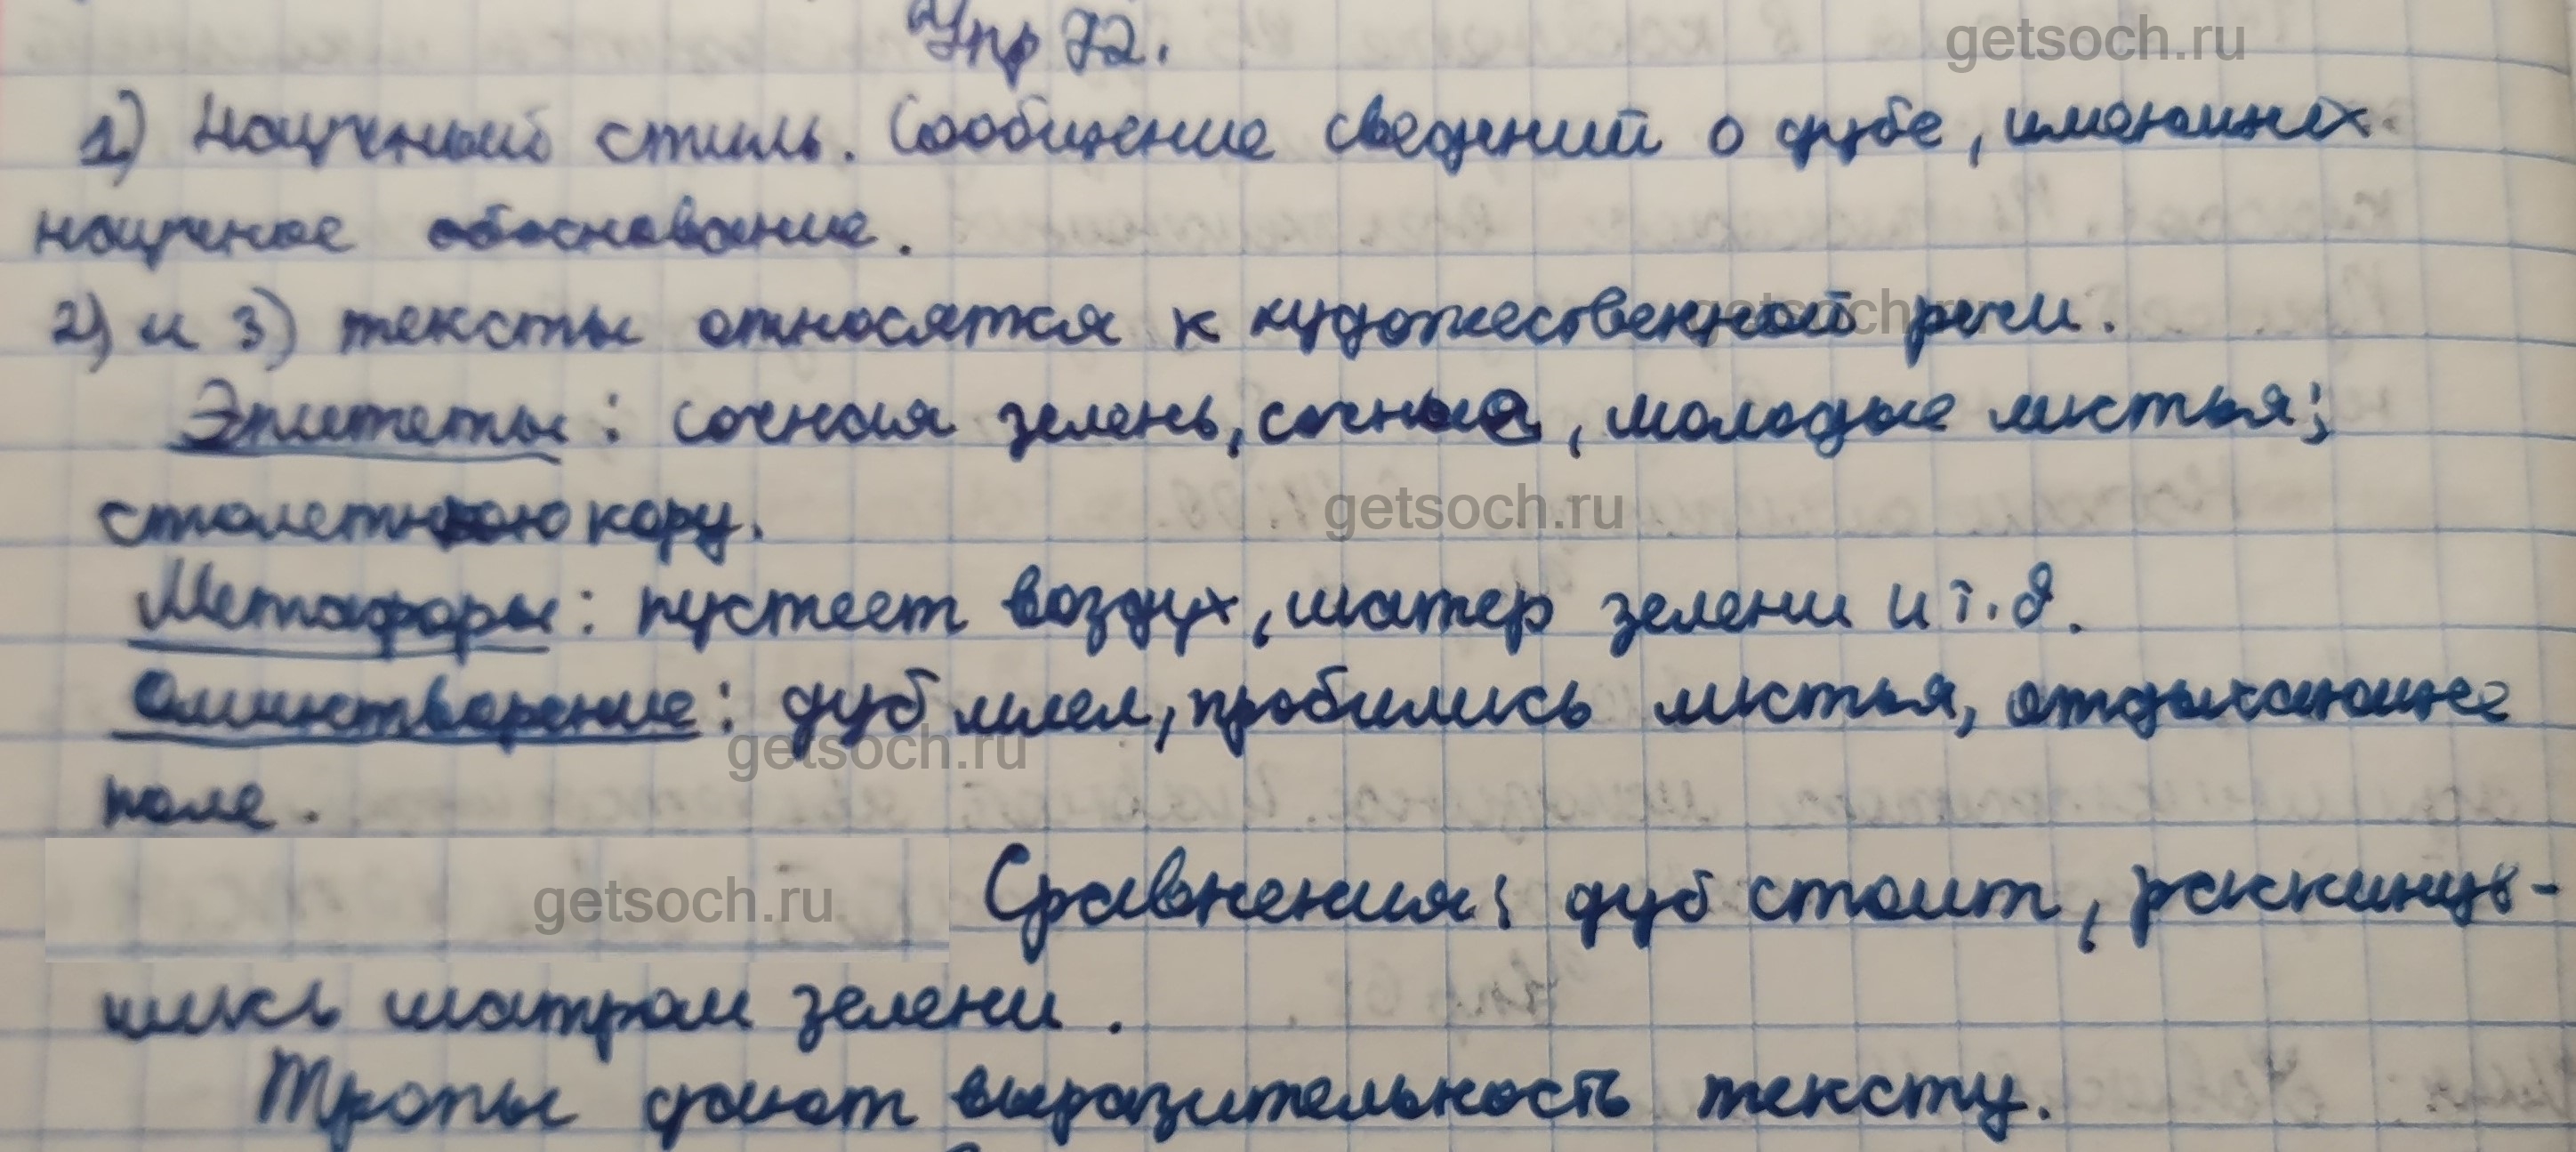 Упр 72.
getsoch.ru
1) Научный стиль. Сообщение сведений о дубе, имеющих
научное обоснование.
2) и 3) тексты относятся к художественной речи.
getsoch.ru
Эпитеты: сочная зелень, сочные, молодые листья;
столетнюю кору.
getsoch.ru
Метафоры: пустеет воздух, шатер зелени и т.д.
Олицетворение: дуб млел, пробились листья, отдыхающее
getsoch.ru
поле.
getsoch.ru
Сравнения: дуб стоит, раскинув-
шись шатром зелени.
Тропы дают выразительность тексту.